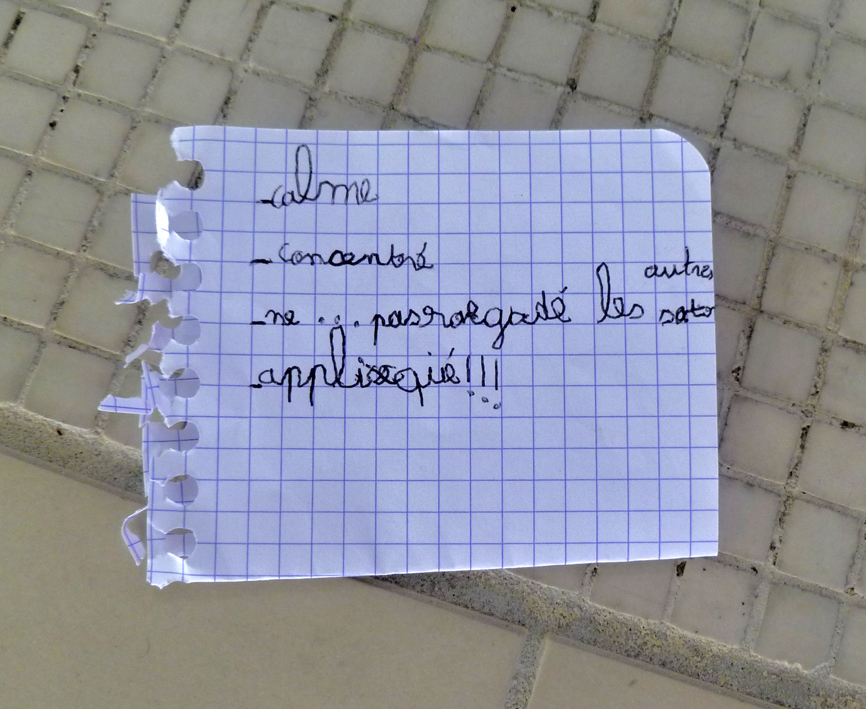 -calme
-concentré
-ne ... pas regardé les autres
-appliqué!!!